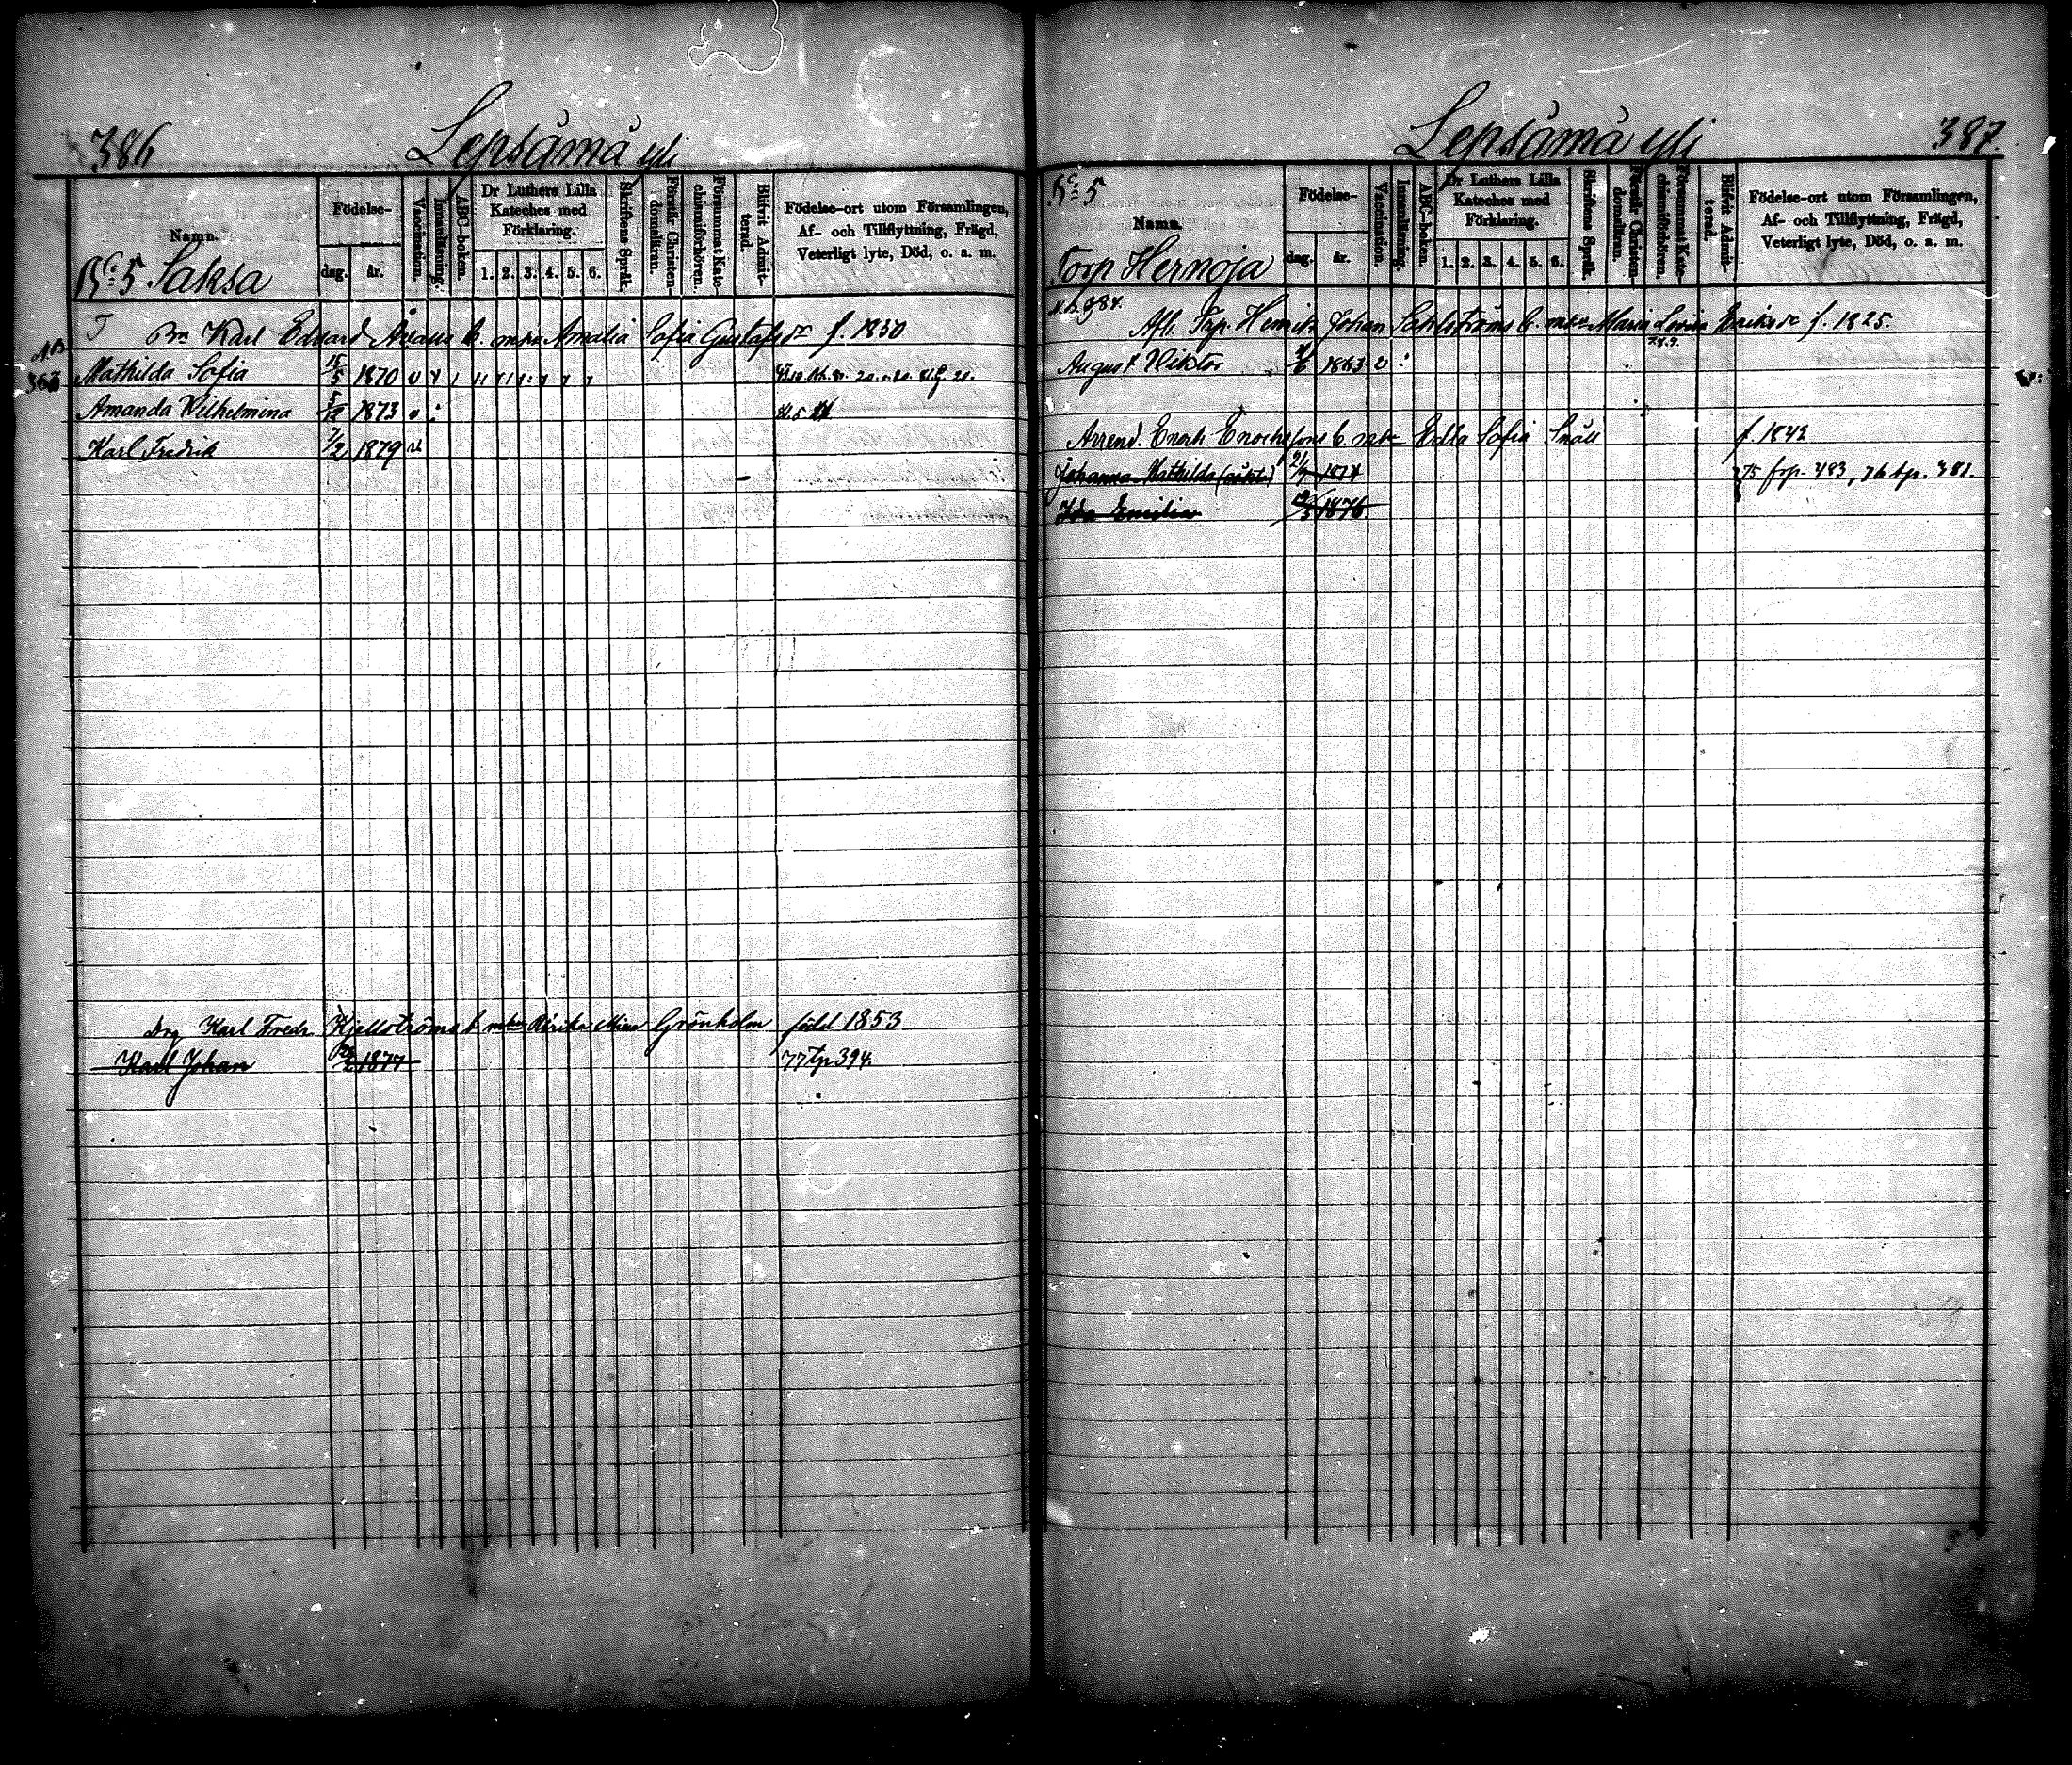 386
Lepsämä yli
Namn.
Födelse-
dag.
år.
Vaccination.
Innanläsning.
ABC-boken.
Dr Luthers Lilla Kateches med Förklaring.
1. 2. 3. 4. 5. 6.
Skriftens Språk.
Förstår Christendomsläran.
Försummat Katechismiförhören.
Blifvit Admitterad.
Födelse-ort utom Församlingen,
Af- och Tillflyttning, Frägd,
Veterligt lyte, Död, o. a. m.
No 5 Saksa
Karl Edvard b. mhu Amalia Sofia Gustafsdr f. 1850
Mathilda Sofia 15/5 1870 v
Amanda Wilhelmina 1873 v
Karl Fredrik 7/2 1879 v
Drg Karl Fredr. Kjellströms b. mhu Mina Grönholm född 1853
Karl Johan 1877 77 tp 394.
Lepsämä yli
387.
No 5
Namn.
Födelse-
dag.
år.
Vaccination.
Innanläsning.
ABC-boken.
Dr Luthers Lilla Kateches med Förklaring.
1. 2. 3. 4. 5. 6.
Skriftens Språk.
Förstår Christendomsläran.
Försummat Katechismiförhören.
Blifvit Admitterad.
Födelse-ort utom Församlingen,
Af- och Tillflyttning, Frägd,
Veterligt lyte, Död, o. a. m.
Torp Hernoja
Afl. Trp. Henrik Johan b. mhu Maria Lovisa Eriksdr f. 1825.
August Viktor 1863 v
Arrend. Enok Enochssons b. mhu Edla Sofia Snäll f. 1842
Johanna Mathilda (oäkta) 21/7 1871 75 frp. 483, 76 tp. 381.
Ida Emilia 1876